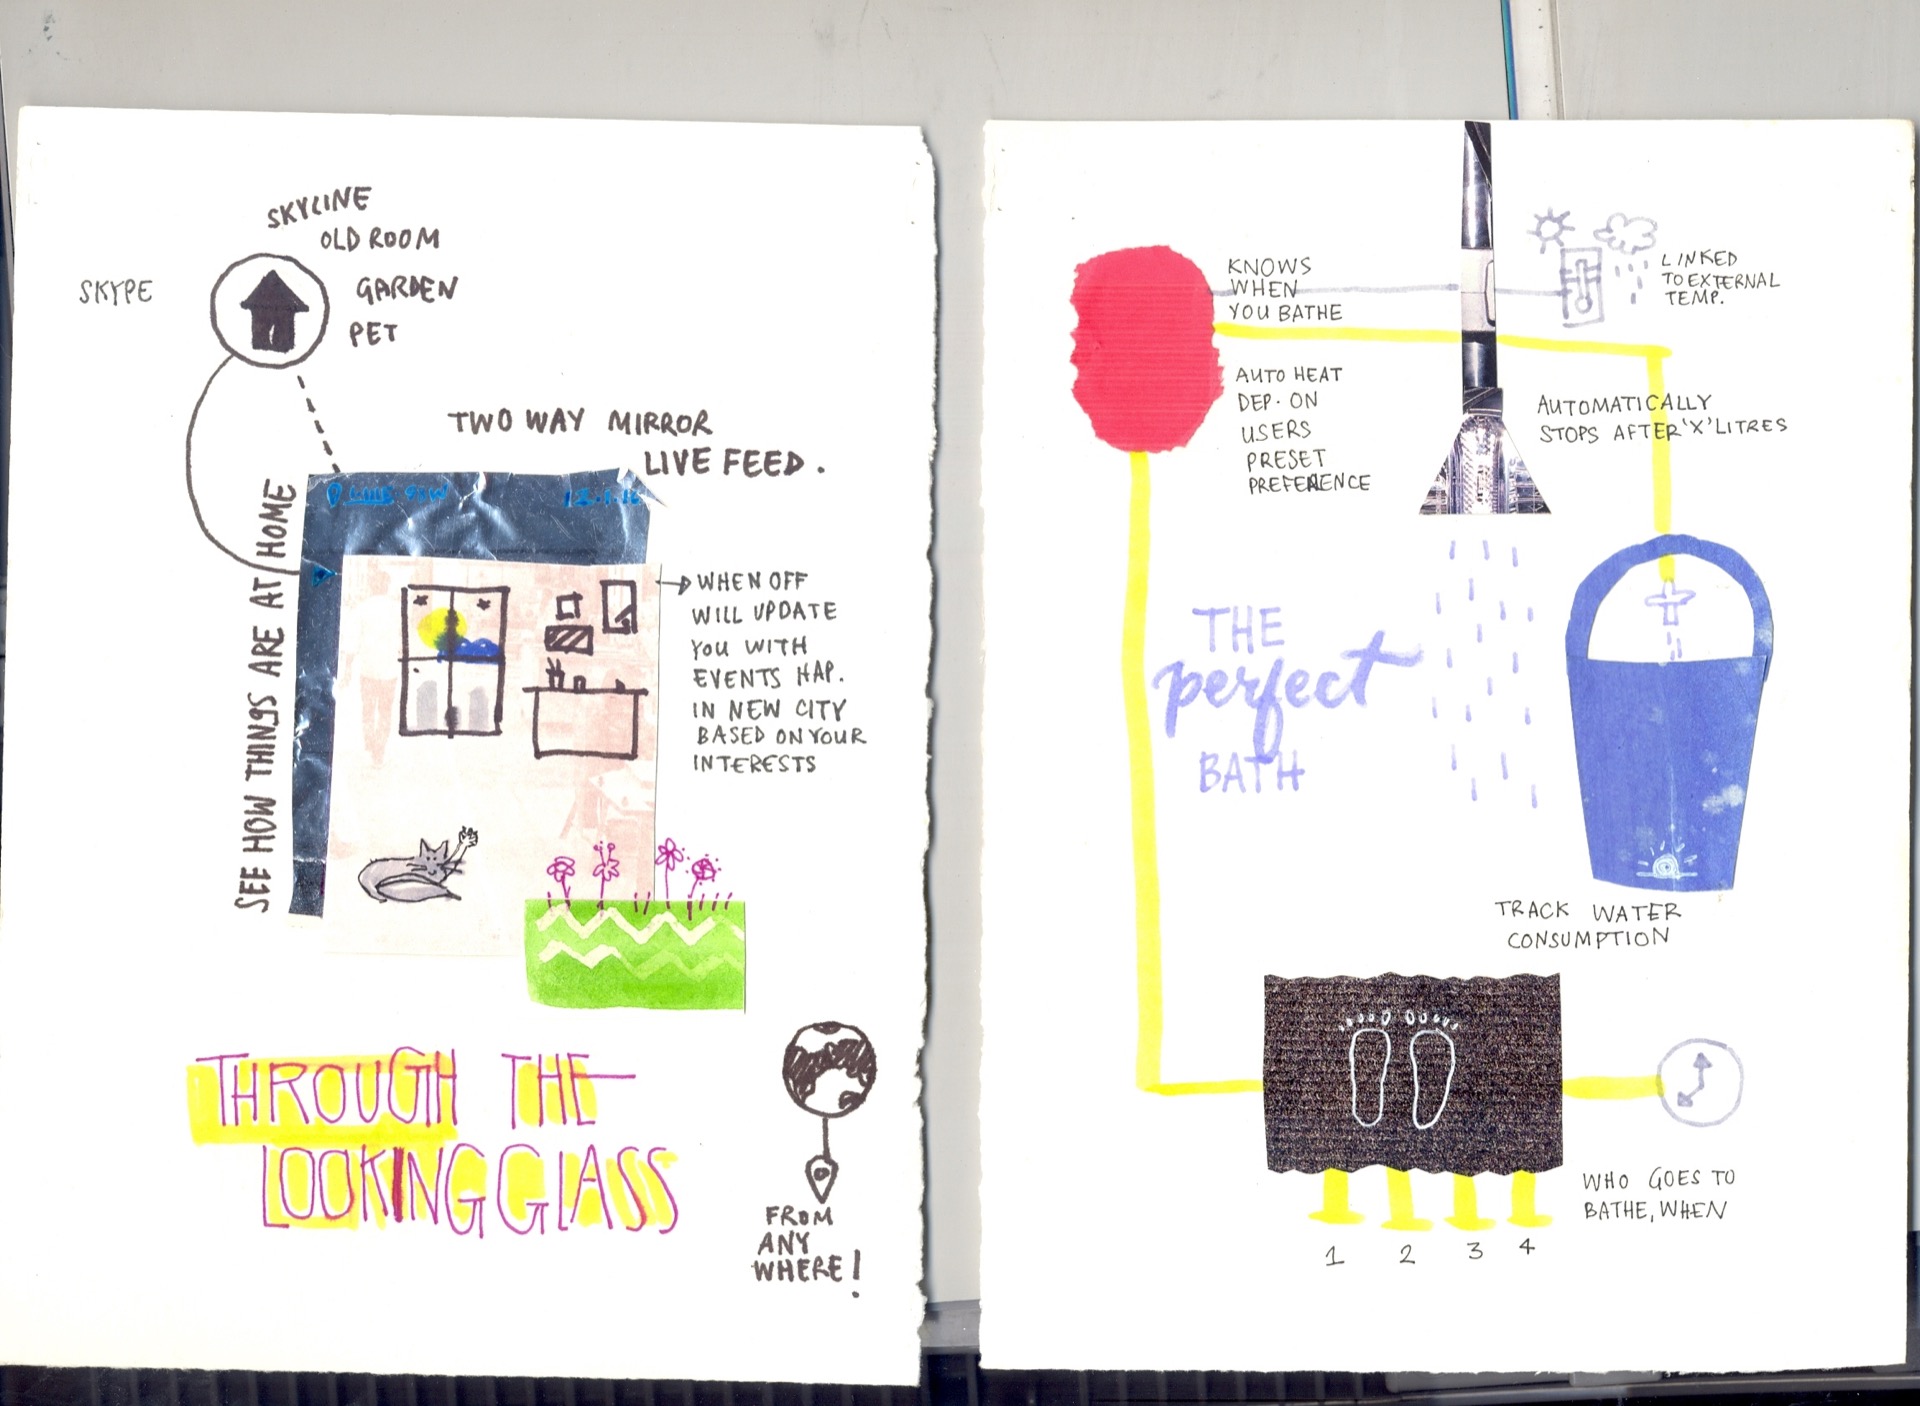 SKYLINE
OLD ROOM
SKYPE
GARDEN
PET
TWO WAY MIRROR
LIVE FEED.
SEE HOW THINGS ARE AT HOME
WHEN OFF
WILL UPDATE
YOU WITH
EVENTS HAP.
IN NEW CITY
BASED ON YOUR
INTERESTS
THROUGH THE
LOOKING GLASS
FROM
ANY
WHERE!
KNOWS
WHEN
YOU BATHE
LINKED
TO EXTERNAL
TEMP.
AUTO HEAT
DEP. ON
USERS
PRESET
PREFERENCE
AUTOMATICALLY
STOPS AFTER 'X' LITRES
THE
perfect
BATH
TRACK WATER
CONSUMPTION
WHO GOES TO
BATHE, WHEN
1 2 3 4